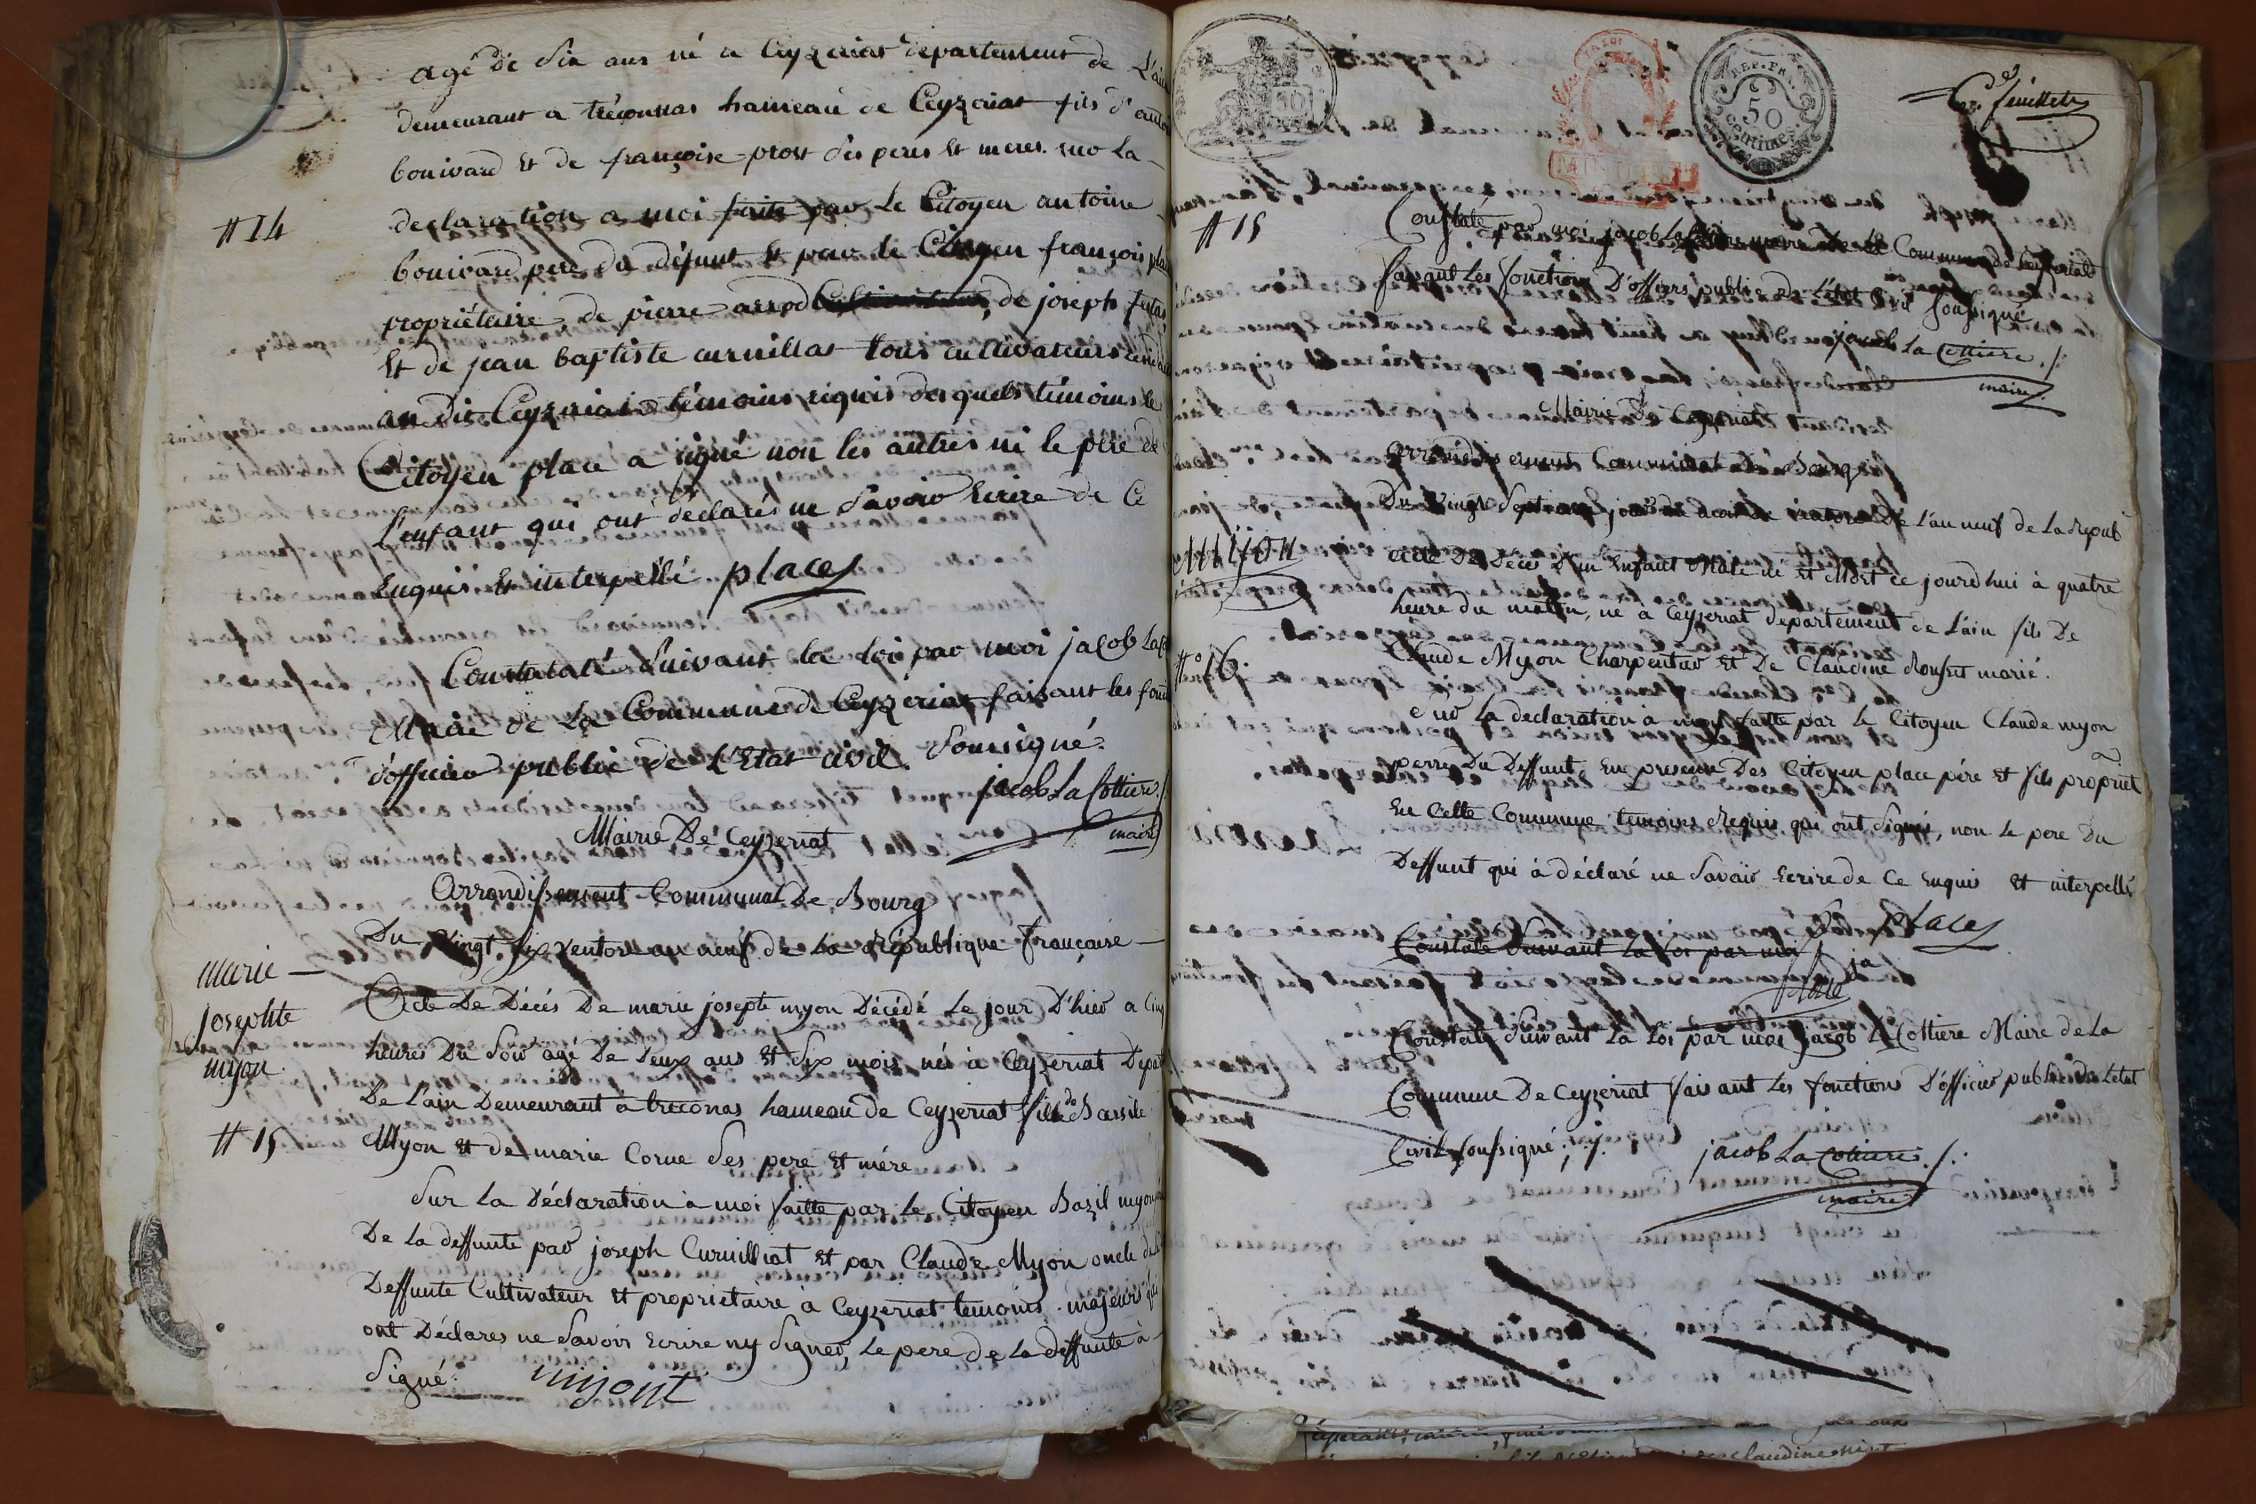 agé de six ans né a Ceyzeriat departement de L'ain
demeurant a treconnas hameau de Ceyzeriat fils d'antoi
bouivard et de françoise prost ses peres et meres. sur la
#14
declaration a moi faite par le Citoyen antoine
bouivard pere du défunt et par le Citoyen françois pla
propriétaire de pierre de joseph
Et de jean baptiste curnillat tous cultivateurs
au dit Ceyzeriat témoins requis desquels témoins le
Citoyen place a signé non les autres ni le pere de
L'enfant qui ont declarés ne savoir Ecrire de Ce
Enquis Et interpellé place
Constaté suivant la loi par moi jacob La
Maire de La Commune de Ceyzeriat faisant les fon
d'officier public de L'Etat civil soussigné
jacob La Cottiere /.
maire
Mairie De Ceyzeriat
Arrondissement Communal De Bourg
Du Vingt six ventose an neuf de La République Française
marie
josephte
myon
Acte De Décés De marie josepte myon Décédé Le jour D'hier a Cinq
heures Du Soir agé De Deux ans Et Six mois née à Ceyzeriat Depart
De L'ain Demeurant à treconas hameau de Ceyzeriat fille de Bassile
#15
Myon Et de marie Corue Ses pere Et mére
Sur La Déclaration à moi faitte par Le Citoyen Bazil myon
De La deffunte par joseph Curnilliat Et par Claude Myon oncle de la
Deffunte Cultivateur Et proprietaire à Ceyzeriat temoins majeurs qui
ont Déclares ne Savoir Ecrire ny Signer, Le pere De La deffunte à
Signé.
miyont
REP. FRA.
50
CENTIMES
feuillet
#15
Constaté par moi jacob La Cottiere maire de La Commune de Ceyzeriat
faisant Les fonctions D'officier public de L'état Civil Soussigné
jacob La Cottiere ./.
maire
Mairie De Ceyzeriat
Arrondissement Communal de Bourg
Du vingt Sept jour de mois de ventose De L'an neuf de La Repub
Myon
acte De Déces D'un Enfant Male né Et Mort ce jourd'hui à quatre
heure du matin, né à Ceyzeriat departement de L'ain fils De
#16.
Claude Myon Charpentier Et De Claudine Rousset marié.
Sur La declaration à moy faitte par le Citoyen Claude myon
perre Du Deffunt En presence Des Citoyen place pére Et fils propriet
En Cette Commune temoins Requis qui ont Signés, non Le pere Du
Deffunt qui à déclaré ne Savoir Ecrire de Ce Enquis Et interpellé
place
Constaté Suivant La Loi par moi Ja
place
Constaté Suivant La Loi par moi Jacob La Cottiere Maire de La
Commune De Ceyzeriat faisant Les fonctions D'officier public de L'etat
Civil Soussigné ./.
jacob La Cottiere ./.
maire